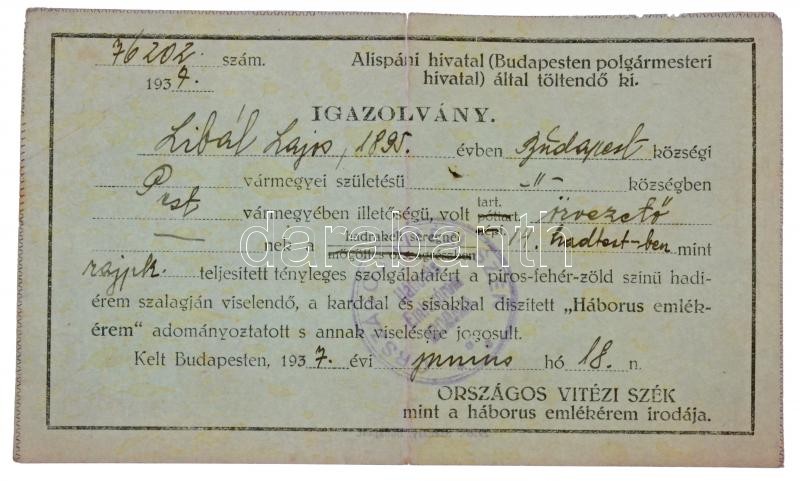 76202. szám.
1937.
Alispáni hivatal (Budapesten polgármesteri
hivatal) által töltendő ki.
IGAZOLVÁNY.
Libál Lajos, 1895. évben Budapest községi
Pest vármegyei születésü -„- községben
vármegyében illetőségü, volt tart. póttart. népf. őrvezető
— nek a hadrakelt seregnél mögöttes országrészben 14. hadtest-ben mint
rajpk. teljesitett tényleges szolgálataiért a piros-fehér-zöld szinü hadi-
érem szalagján viselendő, a karddal és sisakkal diszitett „Háborus emlék-
érem" adományoztatott s annak viselésére jogosult.
Kelt Budapesten, 1937. évi junius hó 18. n.
ORSZÁGOS VITÉZI SZÉK
mint a háborus emlékérem irodája.
darabanth